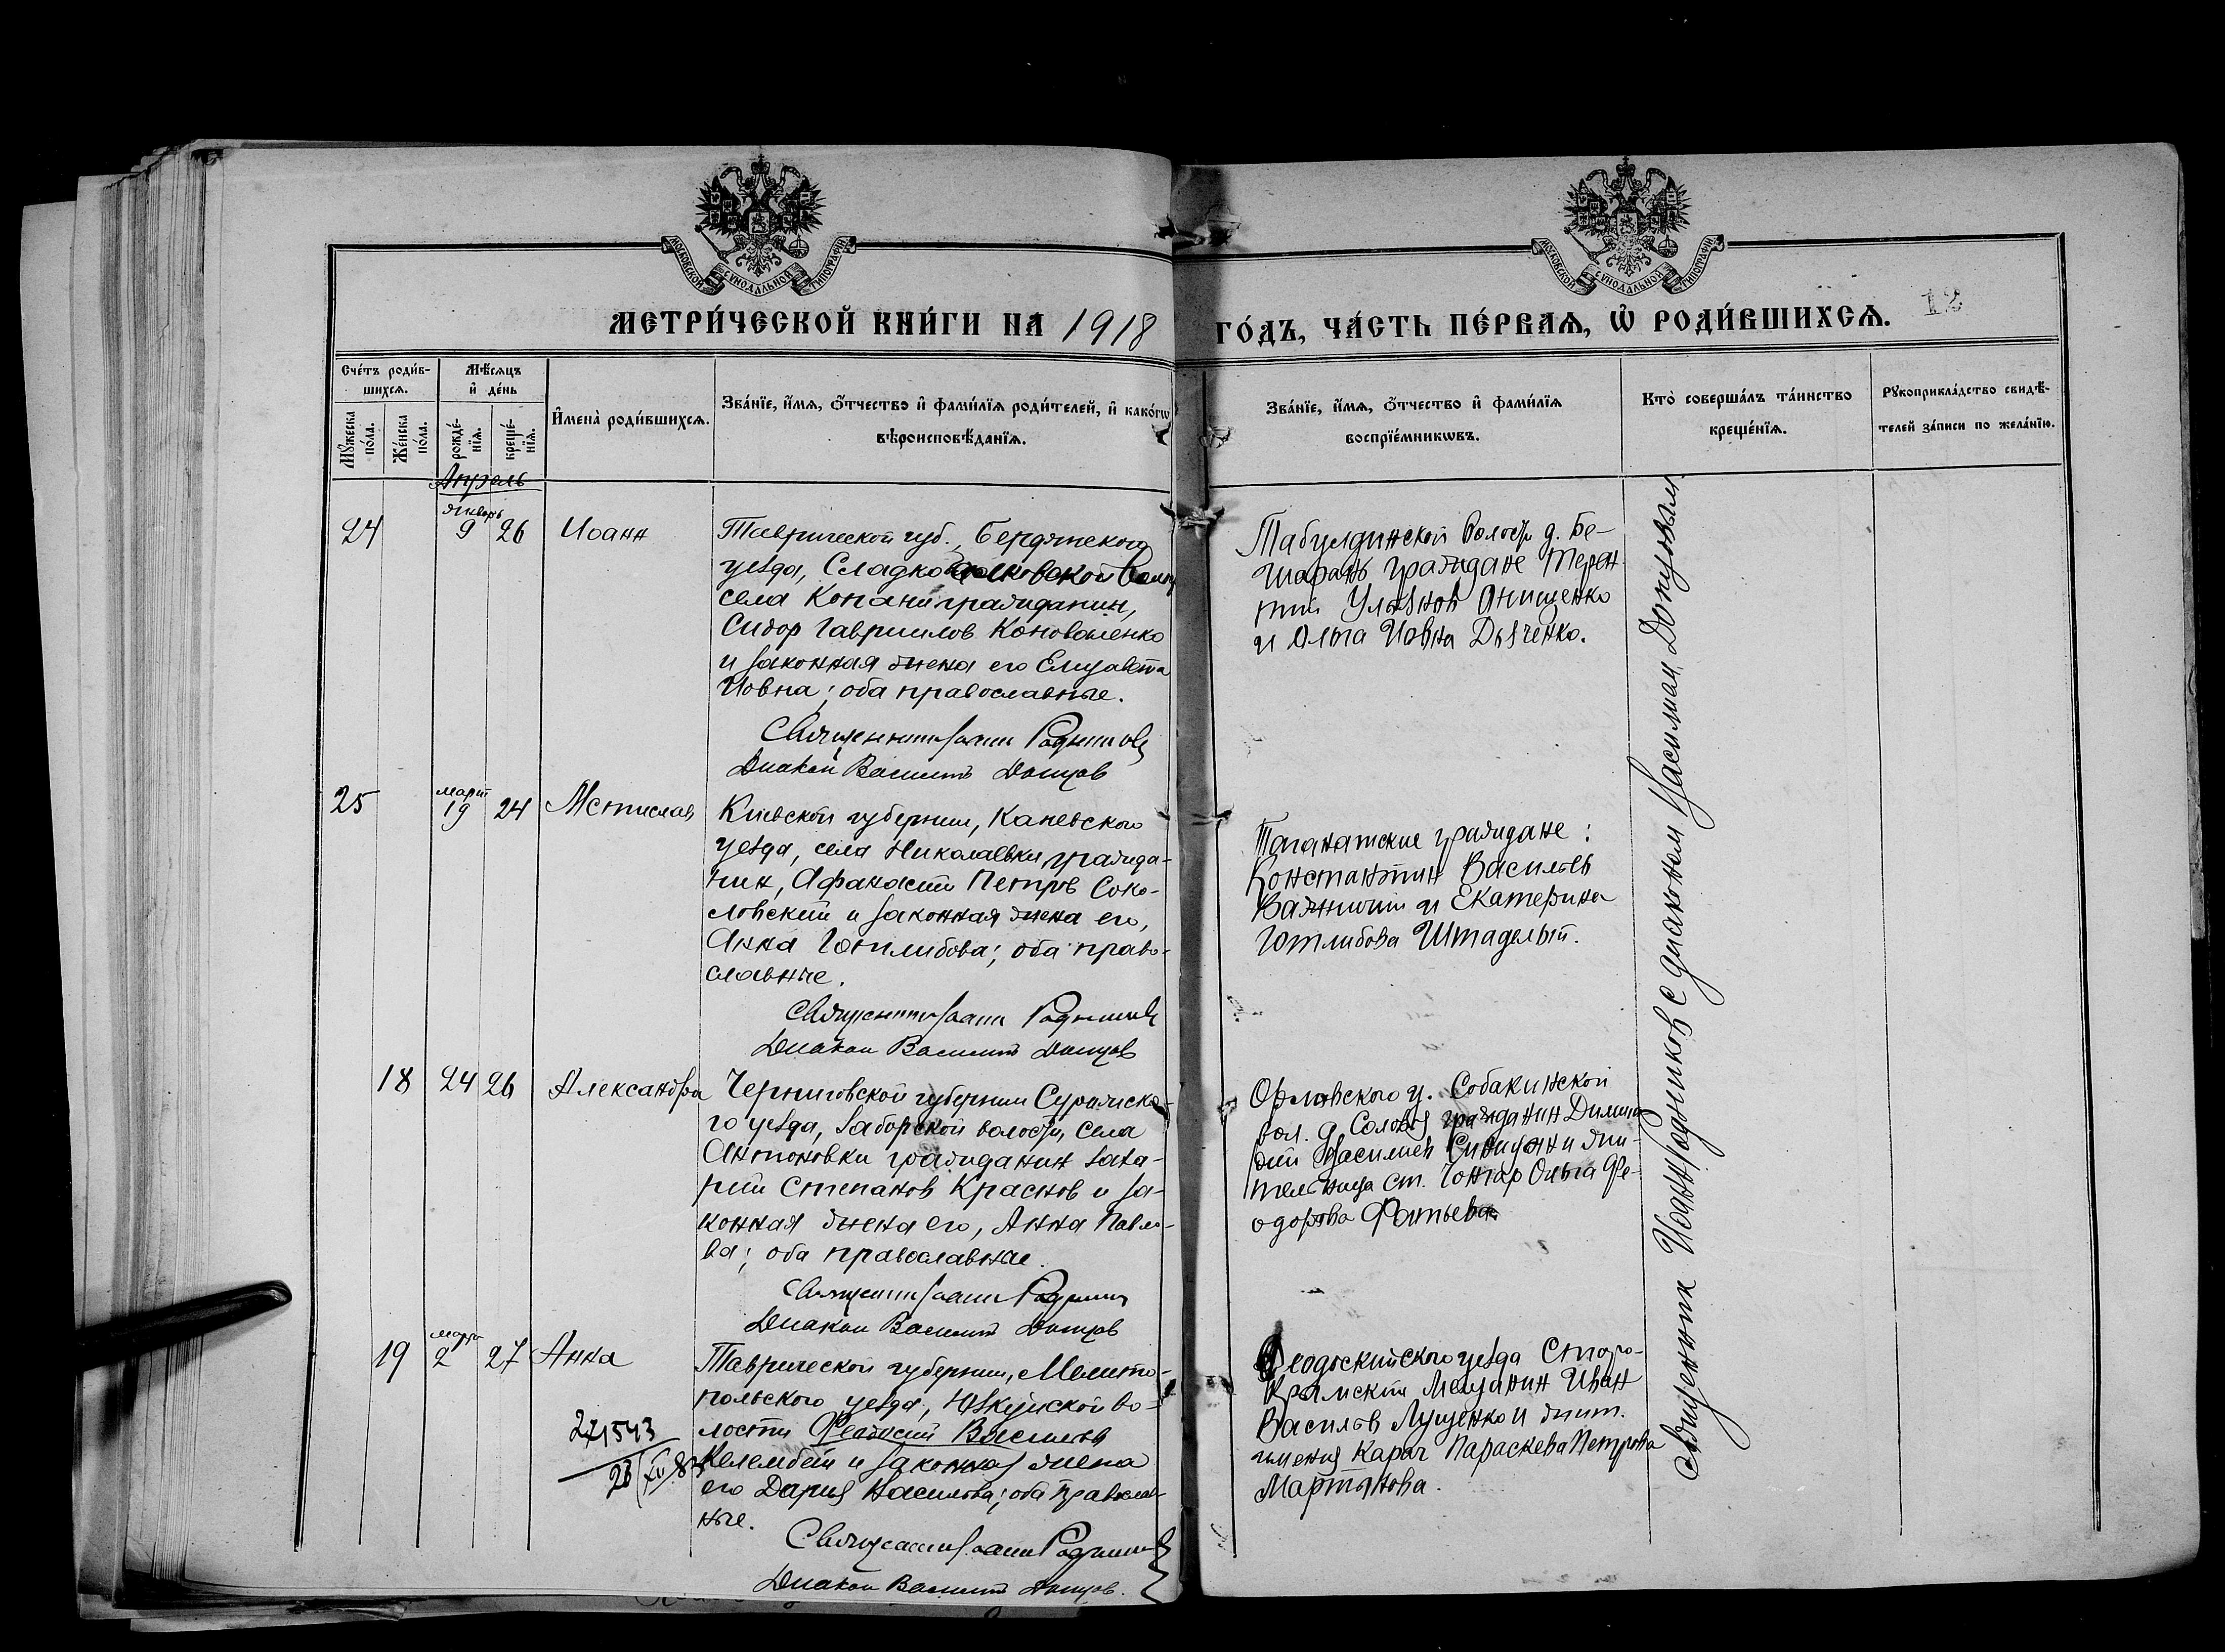 МОСКОВСКОЙ СѴНОДАЛЬНОЙ ТИПОГРАФІИ
МОСКОВСКОЙ СѴНОДАЛЬНОЙ ТИПОГРАФІИ
МЕТРИ́ЧЕСКОЙ КНИ́ГИ НА 1918 ГО́ДЪ, ЧА́СТЬ ПЕ́РВАѦ, Ѡ҆ РОДИ́ВШИХСѦ.
12
Сче́тъ роди́в-
шихсѧ.
Мꙋ́жеска по́ла.
Же́нска по́ла.
Мѣ́сѧцъ
и҆ де́нь
рожде́-
нїѧ.
креще́-
нїѧ.
И҆мена̀ роди́вшихсѧ.
Зва́нїе, и҆́мѧ, ѻ҆́тчество и҆ фами́лїѧ роди́телей, и҆ како́гѡ
вѣроисповѣ́данїѧ.
Зва́нїе, и҆́мѧ, ѻ҆́тчество и҆ фами́лїѧ
воспрїе́мникѡвъ.
Кто̀ соверша́лъ та́инство
креще́нїѧ.
Рꙋкоприкла́дство свидѣ́-
телей за́писи по жела́нїю.
Апрель
24
январь
9 26
Иоанн
Таврической губ., Бердянского
уезда, Сладко
села Копани гражданин,
Сидор Гавриилов Коноваленко
и законная жена его Елизавета
Иовна; оба православные.
Священник Иоанн Родников
Диакон Василий Донцов
Табулдинской волости д. Бе-
шарань граждане Терен-
тий Ульянов Онищенко
и Ольга Иовна Дьяченко.
25
март
19 24
Мстислав
Киевской губернии, Каневского
уезда, села Николаевки гражда-
нин, Афанасий Петров Соко-
ловский и законная жена его,
Анна Готлибова; оба право-
славные.
Священник Иоанн Родников
Диакон Василий Донцов
Таганашские граждане:
Константин Васильев
и Екатерина
Готлибова
18
24 26
Александра
Черниговской губернии Суражско-
го уезда, Заборской волости, села
Антоновки гражданин Заха-
рий Степанов Краснов и за-
конная жена его, Анна Павло-
ва; оба православные.
Священник Иоанн Родников
Диакон Василий Донцов
Орловского у. Собакинской
вол. д. гражданин Дими-
трий Васильев и жи-
тельница ст. Чонгар Ольга Фе-
одорова Фатьева
19
марта
2 27
Анна
Таврической губернии, Мелито-
польского уезда, Юзкуйской во-
лости Феодосий Васильев
Келембет и законная жена
его Дария Васильева; оба православ-
ные.
Священник Иоанн Родников
Диакон Василий Донцов.
271543
Феодосийского уезда Старо-
Крымский мещанин Иван
Васильев Лущенко и жит.
имения Карач Параскева Петрова
Мартынова.
Священник Иоанн Родников с диаконом Василием Донцовым